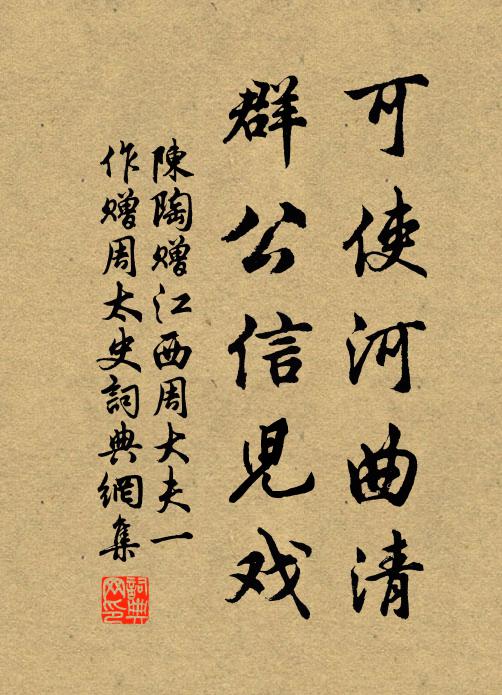 可使河曲清
群公信児戏
陳陶贈江西周大夫一
作贈周太史詞典網集
詞典網印